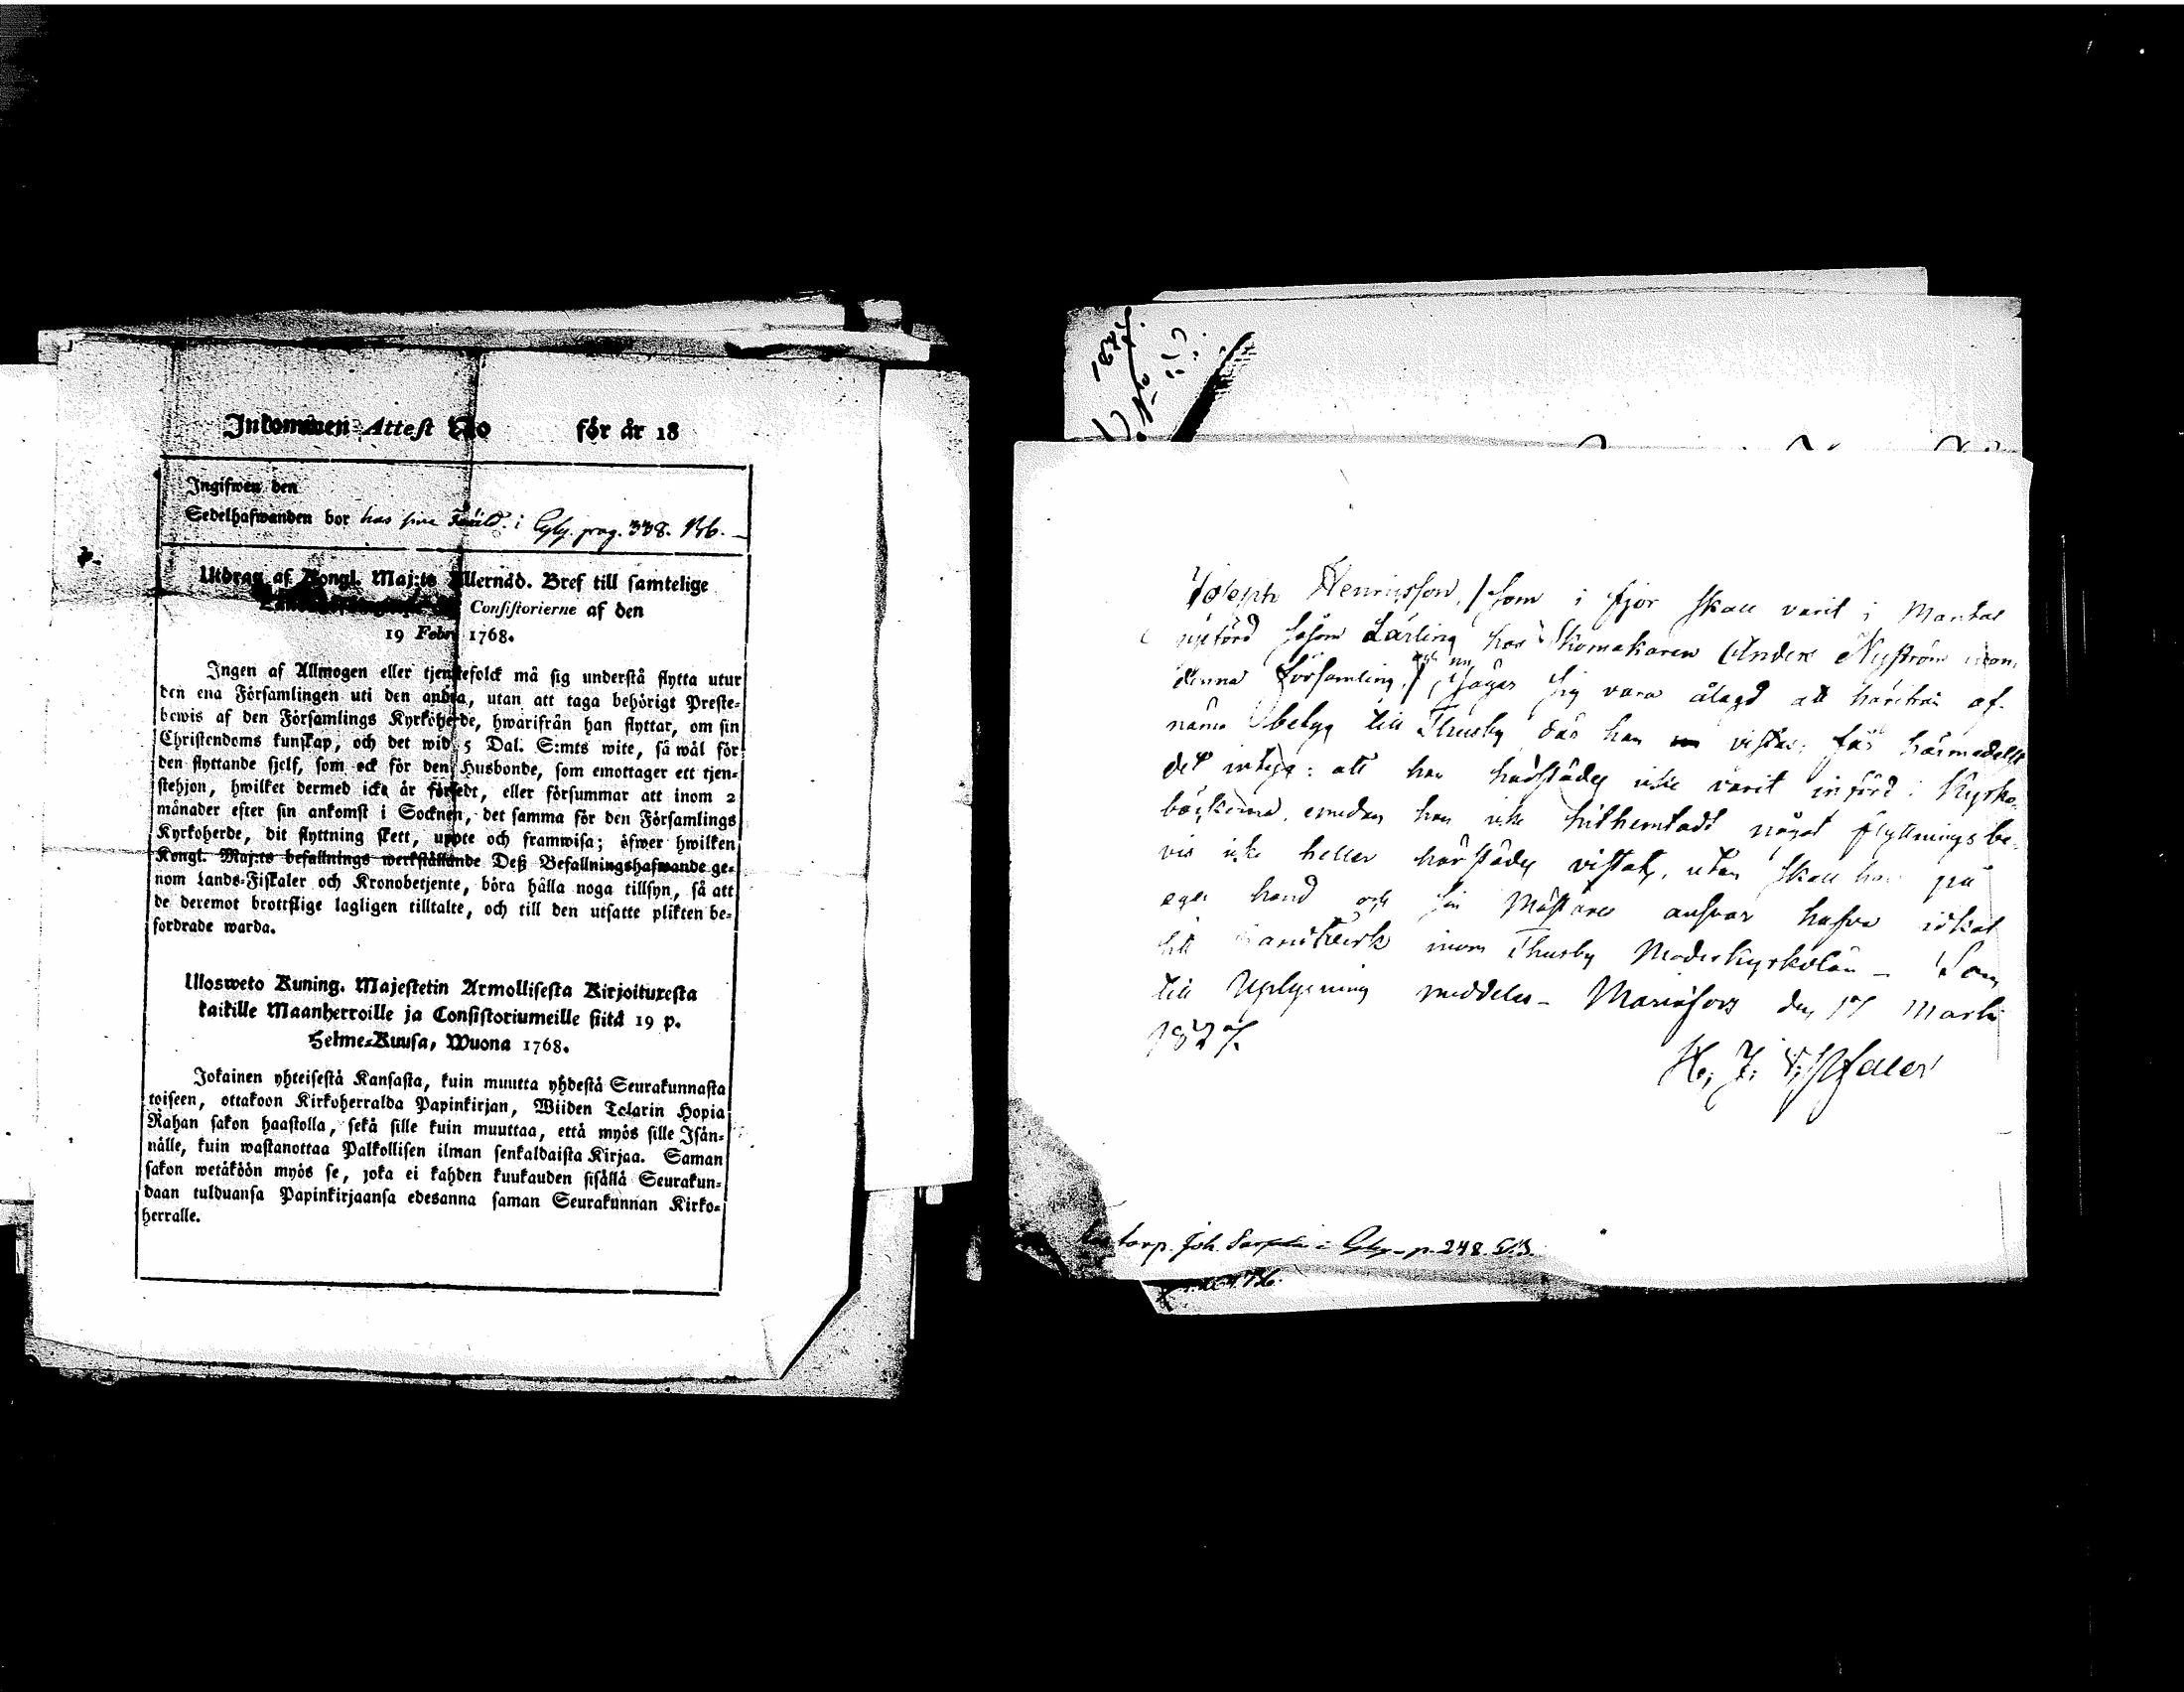 Inkommen Attest No för år 18
Ingifwen den
Sedelhafwanden bor has sine Föräld. i Ggby. pag. 338.
Utdrag af Kongl. Maj:ts Allernåd. Bref till samtelige
Consistorierne af den
19 Febr. 1768.
Ingen af Allmogen eller tjenstefolck må sig understå flytta utur
den ena Församlingen uti den andra, utan att taga behörigt Preste-
bewis af den Församlings Kyrkoherde, hwarifrån han flyttar, om sin
Christendoms kunskap, och det wid 5 Dal. S:mts wite, så wäl för
den flyttande sjelf, som ock för den Husbonde, som emottager ett tjen-
stehjon, hwilket dermed icke är försedt, eller försummar att inom 2
månader efter sin ankomst i Socknen, det samma för den Församlings
Kyrkoherde, dit flyttning skett, uppte och framwisa; öfwer hwilken
Kongl. Maj:ts befallnings werkställande Deß Befallningshafwande ge-
nom Lands-Fiskaler och Kronobetjente, böra hålla noga tillsyn, så att
de deremot brottslige lagligen tilltalte, och till den utsatte plikten be-
fordrade warda.
Ulosweto Kuning. Majestetin Armollisesta Kirjoituxesta
kaikille Maanherroille ja Consistoriumeille siitä 19 p.
Helme-Kuusa, Wuona 1768.
Jokainen yhteisestä Kansasta, kuin muutta yhdestä Seurakunnasta
toiseen, ottakoon Kirkoherralda Papinkirjan, Wiiden Telarin Hopia
Rahan sakon haastolla, sekä sille kuin muuttaa, että myös sille Isän-
nälle, kuin wastanottaa Palkollisen ilman senkaldaista Kirjaa. Saman
sakon wetäköön myös se, joka ei kahden kuukauden sisällä Seurakun-
daan tulduansa Papinkirjaansa edesanna saman Seurakunnan Kirko-
herralle.
1827.
No
Joseph Henricsson, /som i fjor skall varit i Mantal
upförd såsom Lärling hos Skomakaren Anders Nyström inom
denna Församling,/ och nu säger sig vara ålagd att härifrån af-
betyg till Thusby där han vistas, får härmedelst
det intyga: att han härstädes icke varit införd i Kyrko-
böckerna, emedan han icke hithemtadt något flyttningsbe-
vis icke heller härstädes vistats, utan skall han på
egen hand och sin Mästares ansvar hafva idkat
sitt Handtverk inom Thusby Moderkyrkolän – Som
till Uplysning meddeles – Mariæfors den 17 Martii
1827.
torp. Joh. i p. 248.